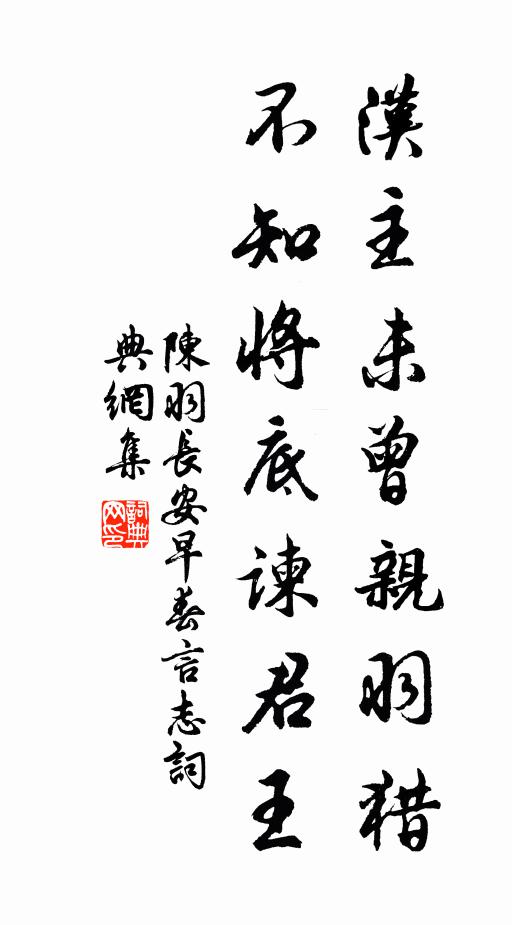 漢主未曾親羽猎
不知将底諫君王
陳羽長安早春言志詞
典網集
詞典
网印